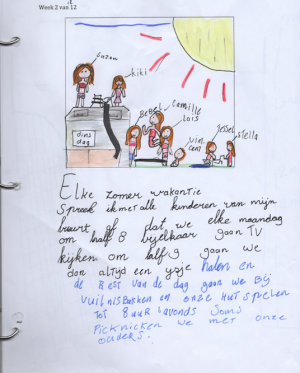 Week 2 van 12
Suzan
kiki
Bebel
Camille
Lois
Jessel
Vin
cent
Stella
dins
dag
Elke zomer vakantie
spreek ik met alle kinderen van mijn
buurt af dat we elke maandag
om half 8 bijelkaar gaan TV
kijken om half 9 gaan we
dan altijd een ijsje halen en
de Rest van de dag gaan we Bij
vuilnisbakken en onze hut spelen
tot 8 uur 's avonds soms
Picknicken we met onze
ouders.